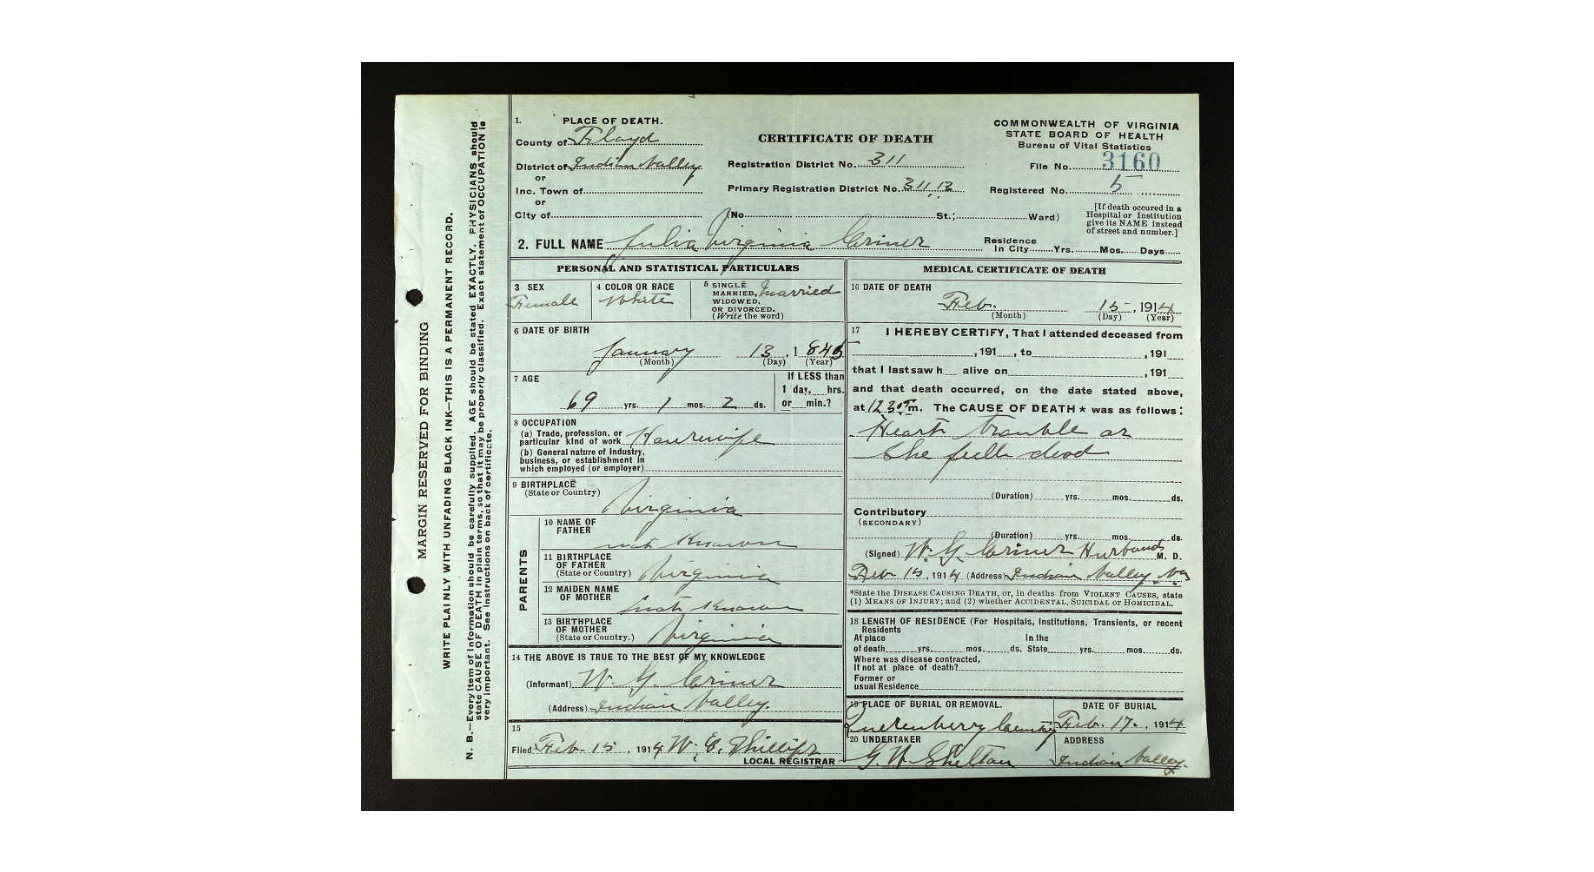 MARGIN RESERVED FOR BINDING
WRITE PLAINLY WITH UNFADING BLACK INK—THIS IS A PERMANENT RECORD.
N. B.—Every item of information should be carefully supplied. AGE should be stated EXACTLY. PHYSICIANS should
state CAUSE OF DEATH in plain terms, so that it may be properly classified. Exact statement of OCCUPATION is
very important. See instructions on back of certificate.
1. PLACE OF DEATH.
County of Floyd
District of Indian Valley
or
Inc. Town of
or
City of
CERTIFICATE OF DEATH
Registration District No. 311
Primary Registration District No. 311,13
(No. St.; Ward)
COMMONWEALTH OF VIRGINIA
STATE BOARD OF HEALTH
Bureau of Vital Statistics
File No. 3160
Registered No. 5
[If death occured in a
Hospital or Institution
give its NAME instead
of street and number.]
2. FULL NAME Julia Virginia Criner
Residence
In City Yrs. Mos. Days
PERSONAL AND STATISTICAL PARTICULARS
3 SEX
Female
4 COLOR OR RACE
White
5 SINGLE
MARRIED,
WIDOWED,
OR DIVORCED.
(Write the word)
Married
6 DATE OF BIRTH
January 13, 1845
(Month) (Day) (Year)
7 AGE
69 yrs. 1 mos. 2 ds.
If LESS than
1 day, hrs.
or min.?
8 OCCUPATION
(a) Trade, profession, or
particular kind of work Housewife
(b) General nature of industry,
business, or establishment in
which employed (or employer)
9 BIRTHPLACE
(State or Country)
Virginia
PARENTS
10 NAME OF
FATHER
not Known
11 BIRTHPLACE
OF FATHER
(State or Country)
Virginia
12 MAIDEN NAME
OF MOTHER
not Known
13 BIRTHPLACE
OF MOTHER
(State or Country.)
Virginia
14 THE ABOVE IS TRUE TO THE BEST OF MY KNOWLEDGE
(Informant) W. G. Criner
(Address) Indian Valley.
15
Filed Feb. 15, 1914 W. E. Phillips
LOCAL REGISTRAR
MEDICAL CERTIFICATE OF DEATH
16 DATE OF DEATH
Feb. 15, 1914
(Month) (Day) (Year)
17 I HEREBY CERTIFY, That I attended deceased from
, 191 , to , 191
that I last saw h alive on , 191
and that death occurred, on the date stated above,
at 12 30 P m. The CAUSE OF DEATH★ was as follows:
Heart trouble as
She fell dead
(Duration) yrs. mos. ds.
Contributory
(SECONDARY)
(Duration) yrs. mos. ds.
(Signed) W. G. Criner Husband M. D.
Feb 15, 1914 (Address) Indian Valley, Va
*State the DISEASE CAUSING DEATH, or, in deaths from VIOLENT CAUSES, state
(1) MEANS OF INJURY; and (2) whether ACCIDENTAL, SUICIDAL or HOMICIDAL.
18 LENGTH OF RESIDENCE (For Hospitals, Institutions, Transients, or recent
Residents
At place In the
of death yrs. mos. ds. State yrs. mos. ds.
Where was disease contracted,
If not at place of death?
Former or
usual Residence
19 PLACE OF BURIAL OR REMOVAL.
DATE OF BURIAL
Feb. 17, 1914
20 UNDERTAKER
G. W. Shelton
ADDRESS
Indian Valley.